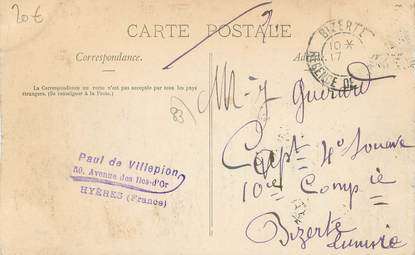 20€
CARTE POSTALE
Correspondance.
La Correspondance au verso n'est pas acceptée par tous les pays
étrangers. (Se renseigner à la Poste.)
BIZERTE
10 *
17
REGENCE DE
83
Paul de Villepion
50, Avenue des Iles-d'Or
HYÈRES (France)
Mr J Guérard
Capt 4e
10e Compie
Bizerte
Tunisie